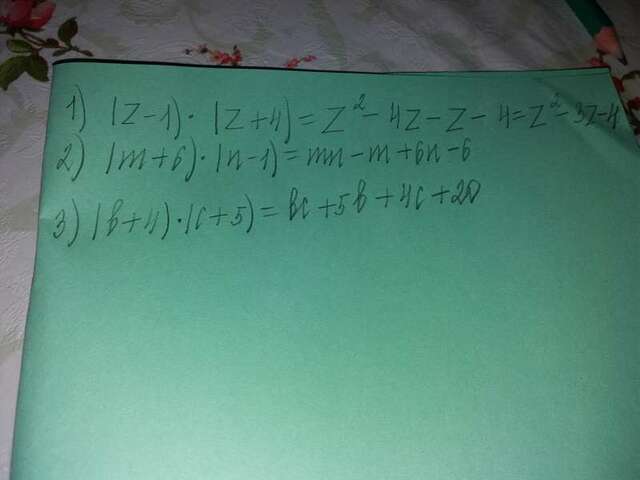 1) (z-1)·(z+4)=z²-4z-z-4=z²-3z-4
2) (m+6)·(n-1)=mn-m+6n-6
3) (b+4)·(c+5)=bc+5b+4c+20